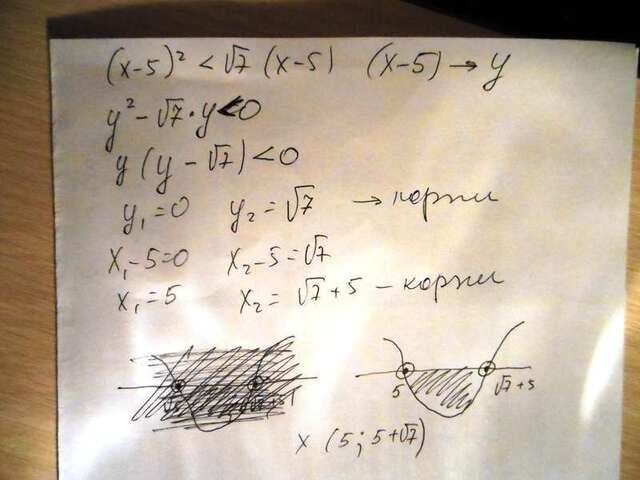 (x-5)² < √7 (x-5) (x-5) → y
y² - √7 · y < 0
y (y - √7) < 0
y₁ = 0 y₂ = √7 → корни
x₁ - 5 = 0 x₂ - 5 = √7
x₁ = 5 x₂ = √7 + 5 - корни
5 √7 + 5
x (5; 5+√7)